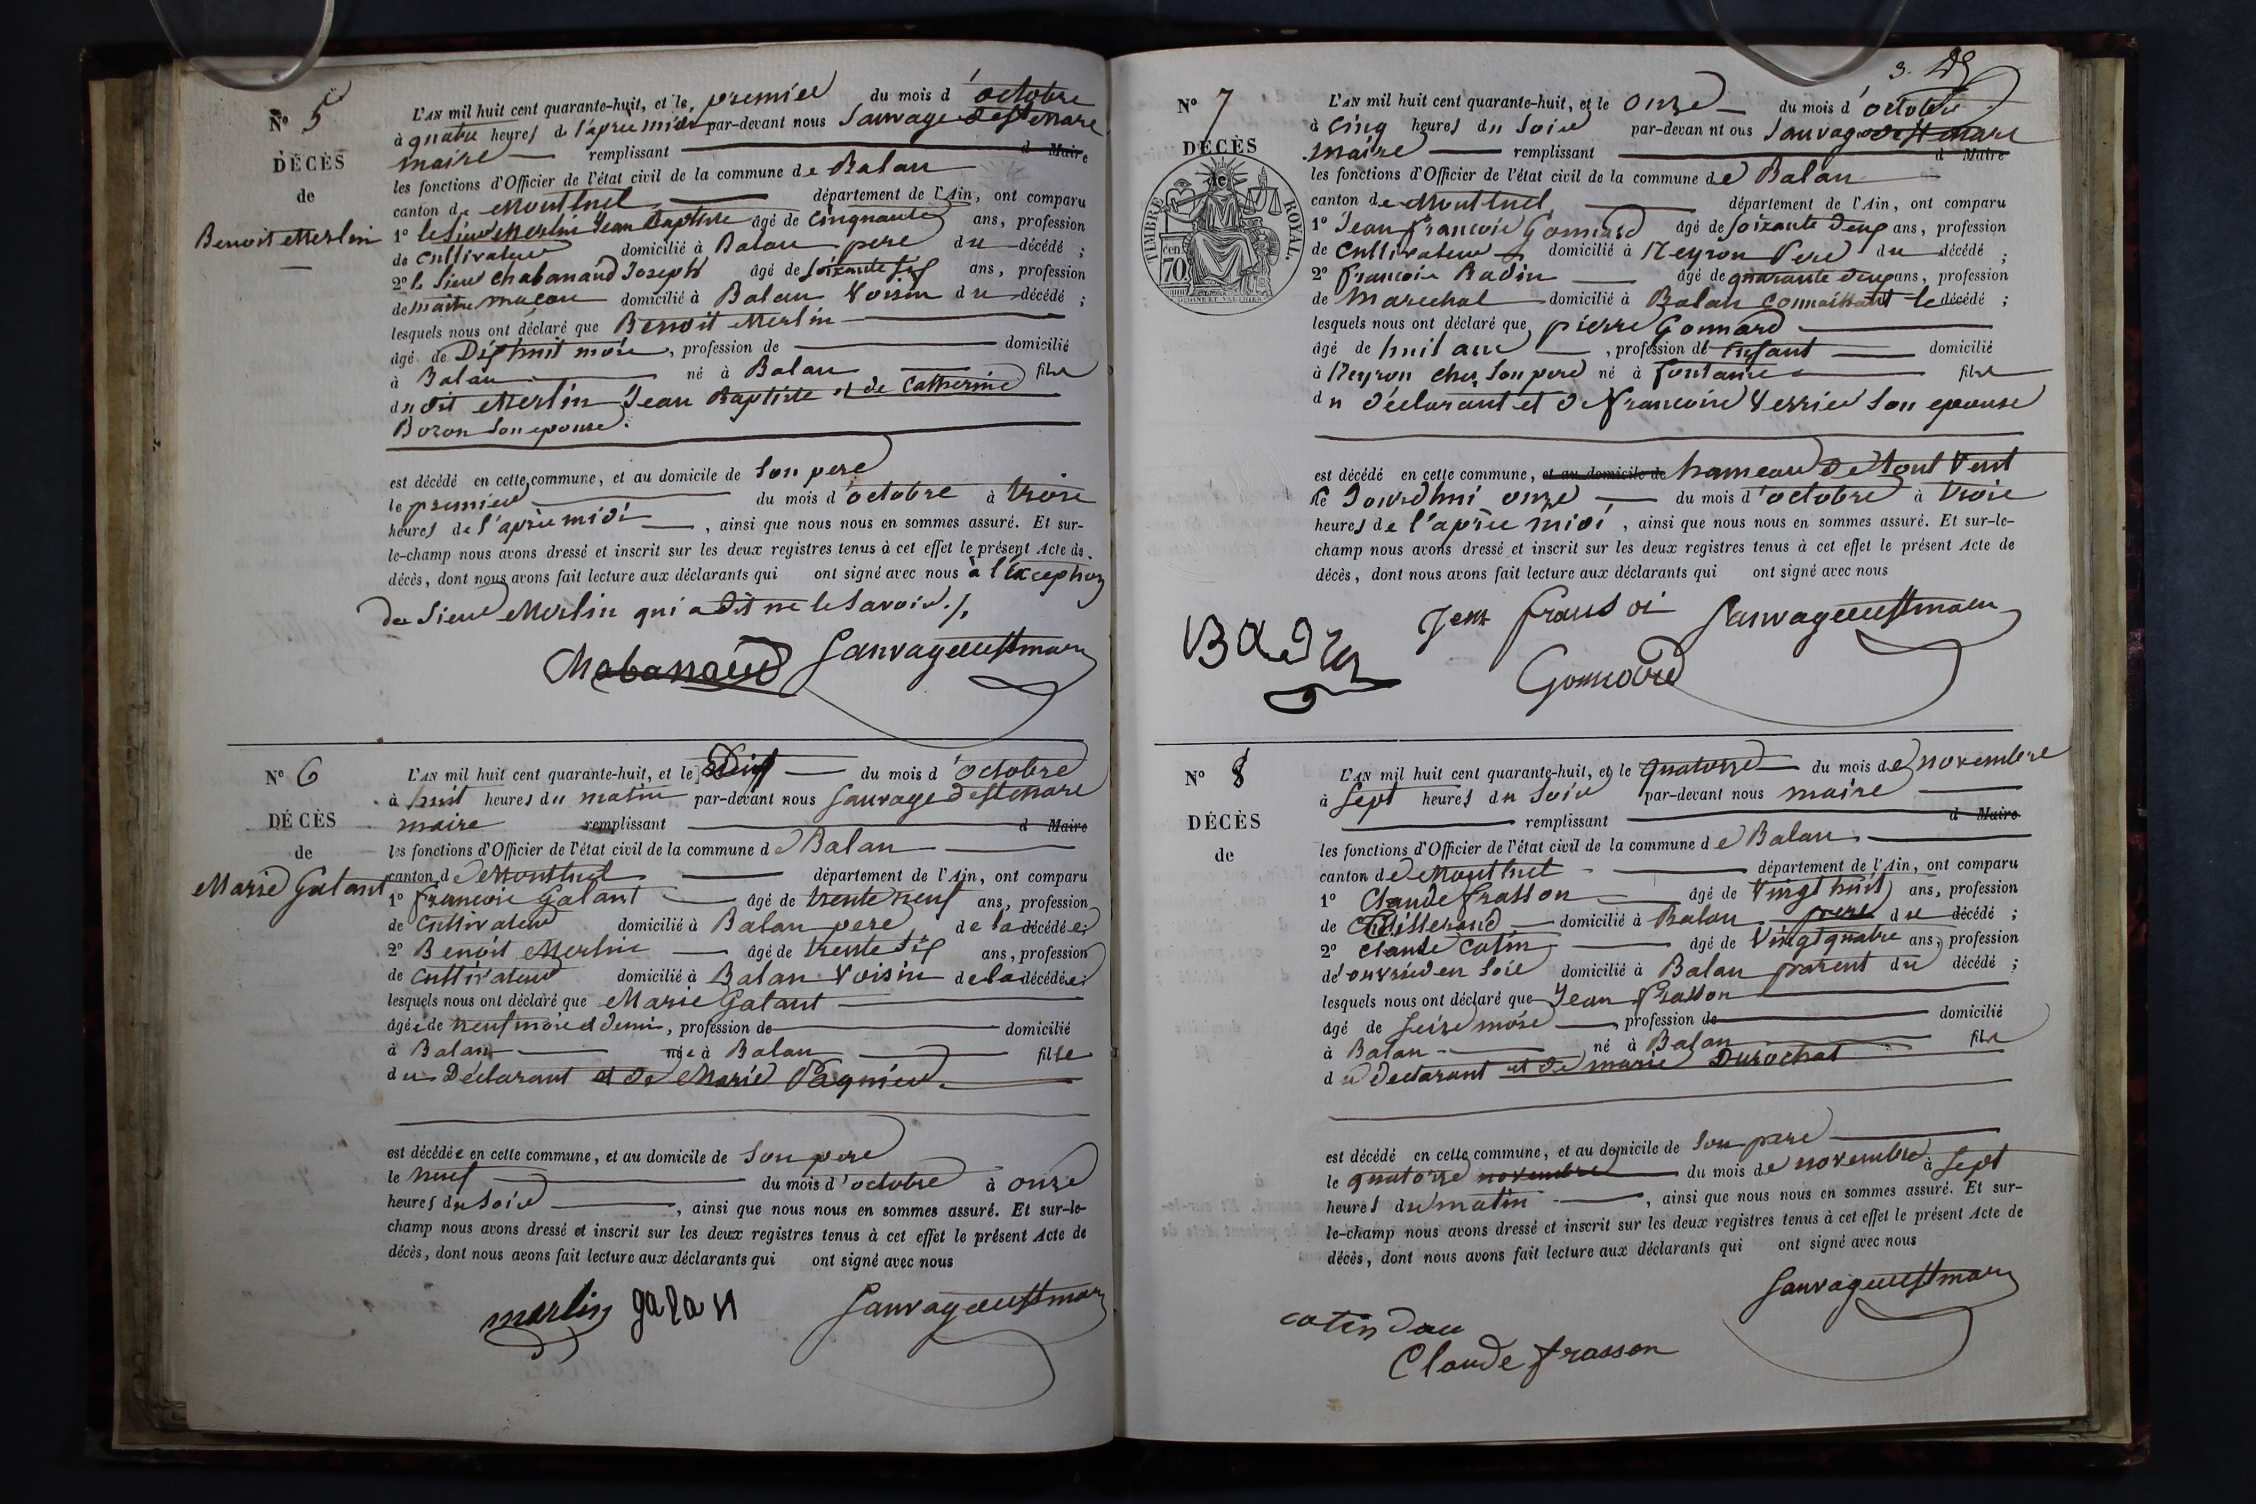 N° 5
DÉCÈS
de
Benoit Merlin
L'AN mil huit cent quarante-huit, et le premier du mois d'octobre
à quatre heures de l'après midi par-devant nous Sauvage
maire remplissant d Maire
les fonctions d'Officier de l'état civil de la commune de Balan
canton de Montluel département de l'Ain, ont comparu
1° le sieur Merlin Jean Baptiste âgé de cinquante ans, profession
de cultivateur domicilié à Balan pere du décédé ;
2° le sieur Chabanaud Joseph âgé de soixante six ans, profession
de maitre maçon domicilié à Balan Voisin du décédé ;
lesquels nous ont déclaré que Benoit Merlin
âgé de Dix huit mois, profession de domicilié
à Balan né à Balan fils
du dit Merlin Jean Baptiste et de Catherine
Bozon son epouse.
est décédé en cette commune, et au domicile de son pere
le premier du mois d'octobre à trois
heures de l'après midi, ainsi que nous nous en sommes assuré. Et sur-
le-champ nous avons dressé et inscrit sur les deux registres tenus à cet effet le présent Acte de
décès, dont nous avons fait lecture aux déclarants qui ont signé avec nous à l'exception
du sieur Merlin qui a dit ne le savoir ./.
Chabanaud
N° 6
DÉCÈS
de
Marie Galant
L'AN mil huit cent quarante-huit, et le Dix du mois d'octobre
à huit heures du matin par-devant nous Sauvage
maire remplissant d Maire
les fonctions d'Officier de l'état civil de la commune de Balan
canton de Montluel département de l'Ain, ont comparu
1° francois Galant âgé de trente neuf ans, profession
de cultivateur domicilié à Balan pere de la décédée ;
2° Benoit Merlin âgé de trente six ans, profession
de cultivateur domicilié à Balan Voisin de la décédée ;
lesquels nous ont déclaré que Marie Galant
âgée de neuf mois et demi, profession de domicilié
à Balan née à Balan fille
du Déclarant et de Marie Pagnieu
est décédée en cette commune, et au domicile de son pere
le neuf du mois d'octobre à onze
heures du soir, ainsi que nous nous en sommes assuré. Et sur-le-
champ nous avons dressé et inscrit sur les deux registres tenus à cet effet le présent Acte de
décès, dont nous avons fait lecture aux déclarants qui ont signé avec nous
merlin galan
3.
N° 7
DÉCÈS
TIMBRE ROYAL.
70 cen
L'AN mil huit cent quarante-huit, et le onze du mois d'octobre
à cinq heures du soir par-devan nt ous Sauvage
maire remplissant d Maire
les fonctions d'Officier de l'état civil de la commune de Balan
canton de Montluel département de l'Ain, ont comparu
1° Jean françois Gonnard âgé de soixante deux ans, profession
de cultivateur domicilié à Neyron Pere du décédé ;
2° francois Badin âgé de quarante deux ans, profession
de Marechal domicilié à Balan connaissant le décédé ;
lesquels nous ont déclaré que pierre Gonnard
âgé de huit ans, profession de enfant domicilié
à Neyron chez son pere né à fontaine fils
du déclarant et de francoise Verrier son epouse
est décédé en cette commune, et au domicile de hameau de tout Vent
le Jourdhui onze du mois d'octobre à trois
heures de l'après midi, ainsi que nous nous en sommes assuré. Et sur-le-
champ nous avons dressé et inscrit sur les deux registres tenus à cet effet le présent Acte de
décès, dont nous avons fait lecture aux déclarants qui ont signé avec nous
Badin
Jean fransoi
Gonnard
N° 8
DÉCÈS
de
L'AN mil huit cent quarante-huit, et le quatorze du mois de novembre
à sept heures du soir par-devant nous maire
remplissant d Maire
les fonctions d'Officier de l'état civil de la commune de Balan
canton de Montluel département de l'Ain, ont comparu
1° Claude frasson âgé de Vingt huit ans, profession
de domicilié à Balan pere du décédé ;
2° claude Catin âgé de Vingt quatre ans, profession
de ouvrier en soie domicilié à Balan parent du décédé ;
lesquels nous ont déclaré que Jean frasson
âgé de seize mois, profession de domicilié
à Balan né à Balan fils
du declarant et de marie Durochat
est décédé en cette commune, et au domicile de son pere
le quatorze novembre du mois de novembre à sept
heures du matin, ainsi que nous nous en sommes assuré. Et sur-
le-champ nous avons dressé et inscrit sur les deux registres tenus à cet effet le présent Acte de
décès, dont nous avons fait lecture aux déclarants qui ont signé avec nous
catin
Claude frasson